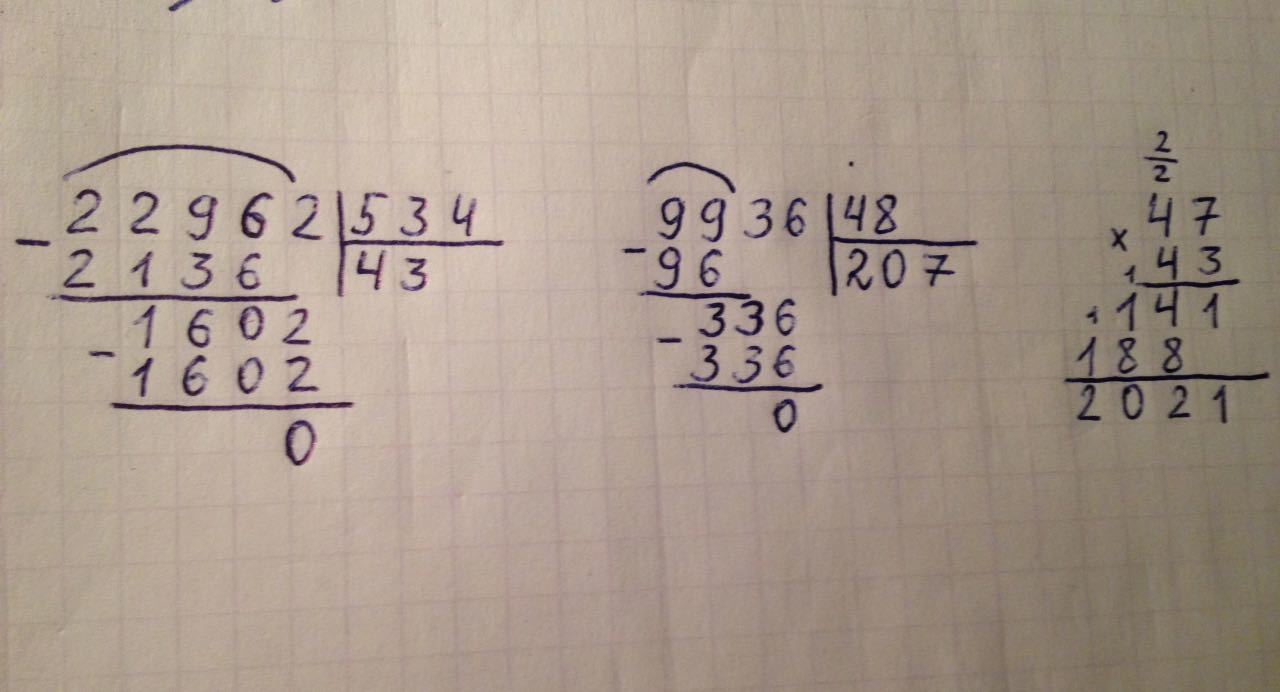 22962 | 534
- 2136 | 43
1602
- 1602
0
9936 | 48
- 96 | 207
336
- 336
0
2
2
47
× 43
141
188
2021